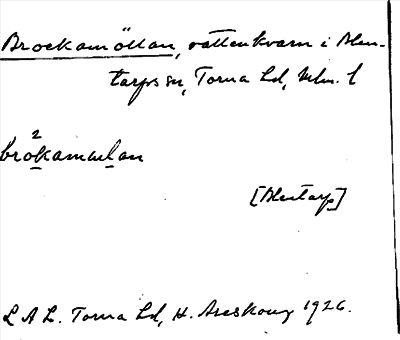 Brockamöllan, vattenkvarn i Blen-
tarps sn, Torna hd, Mlm. l
2
brokamөlan
[Blentarp]
L A L. Torna hd, H. Areskoug 1926.